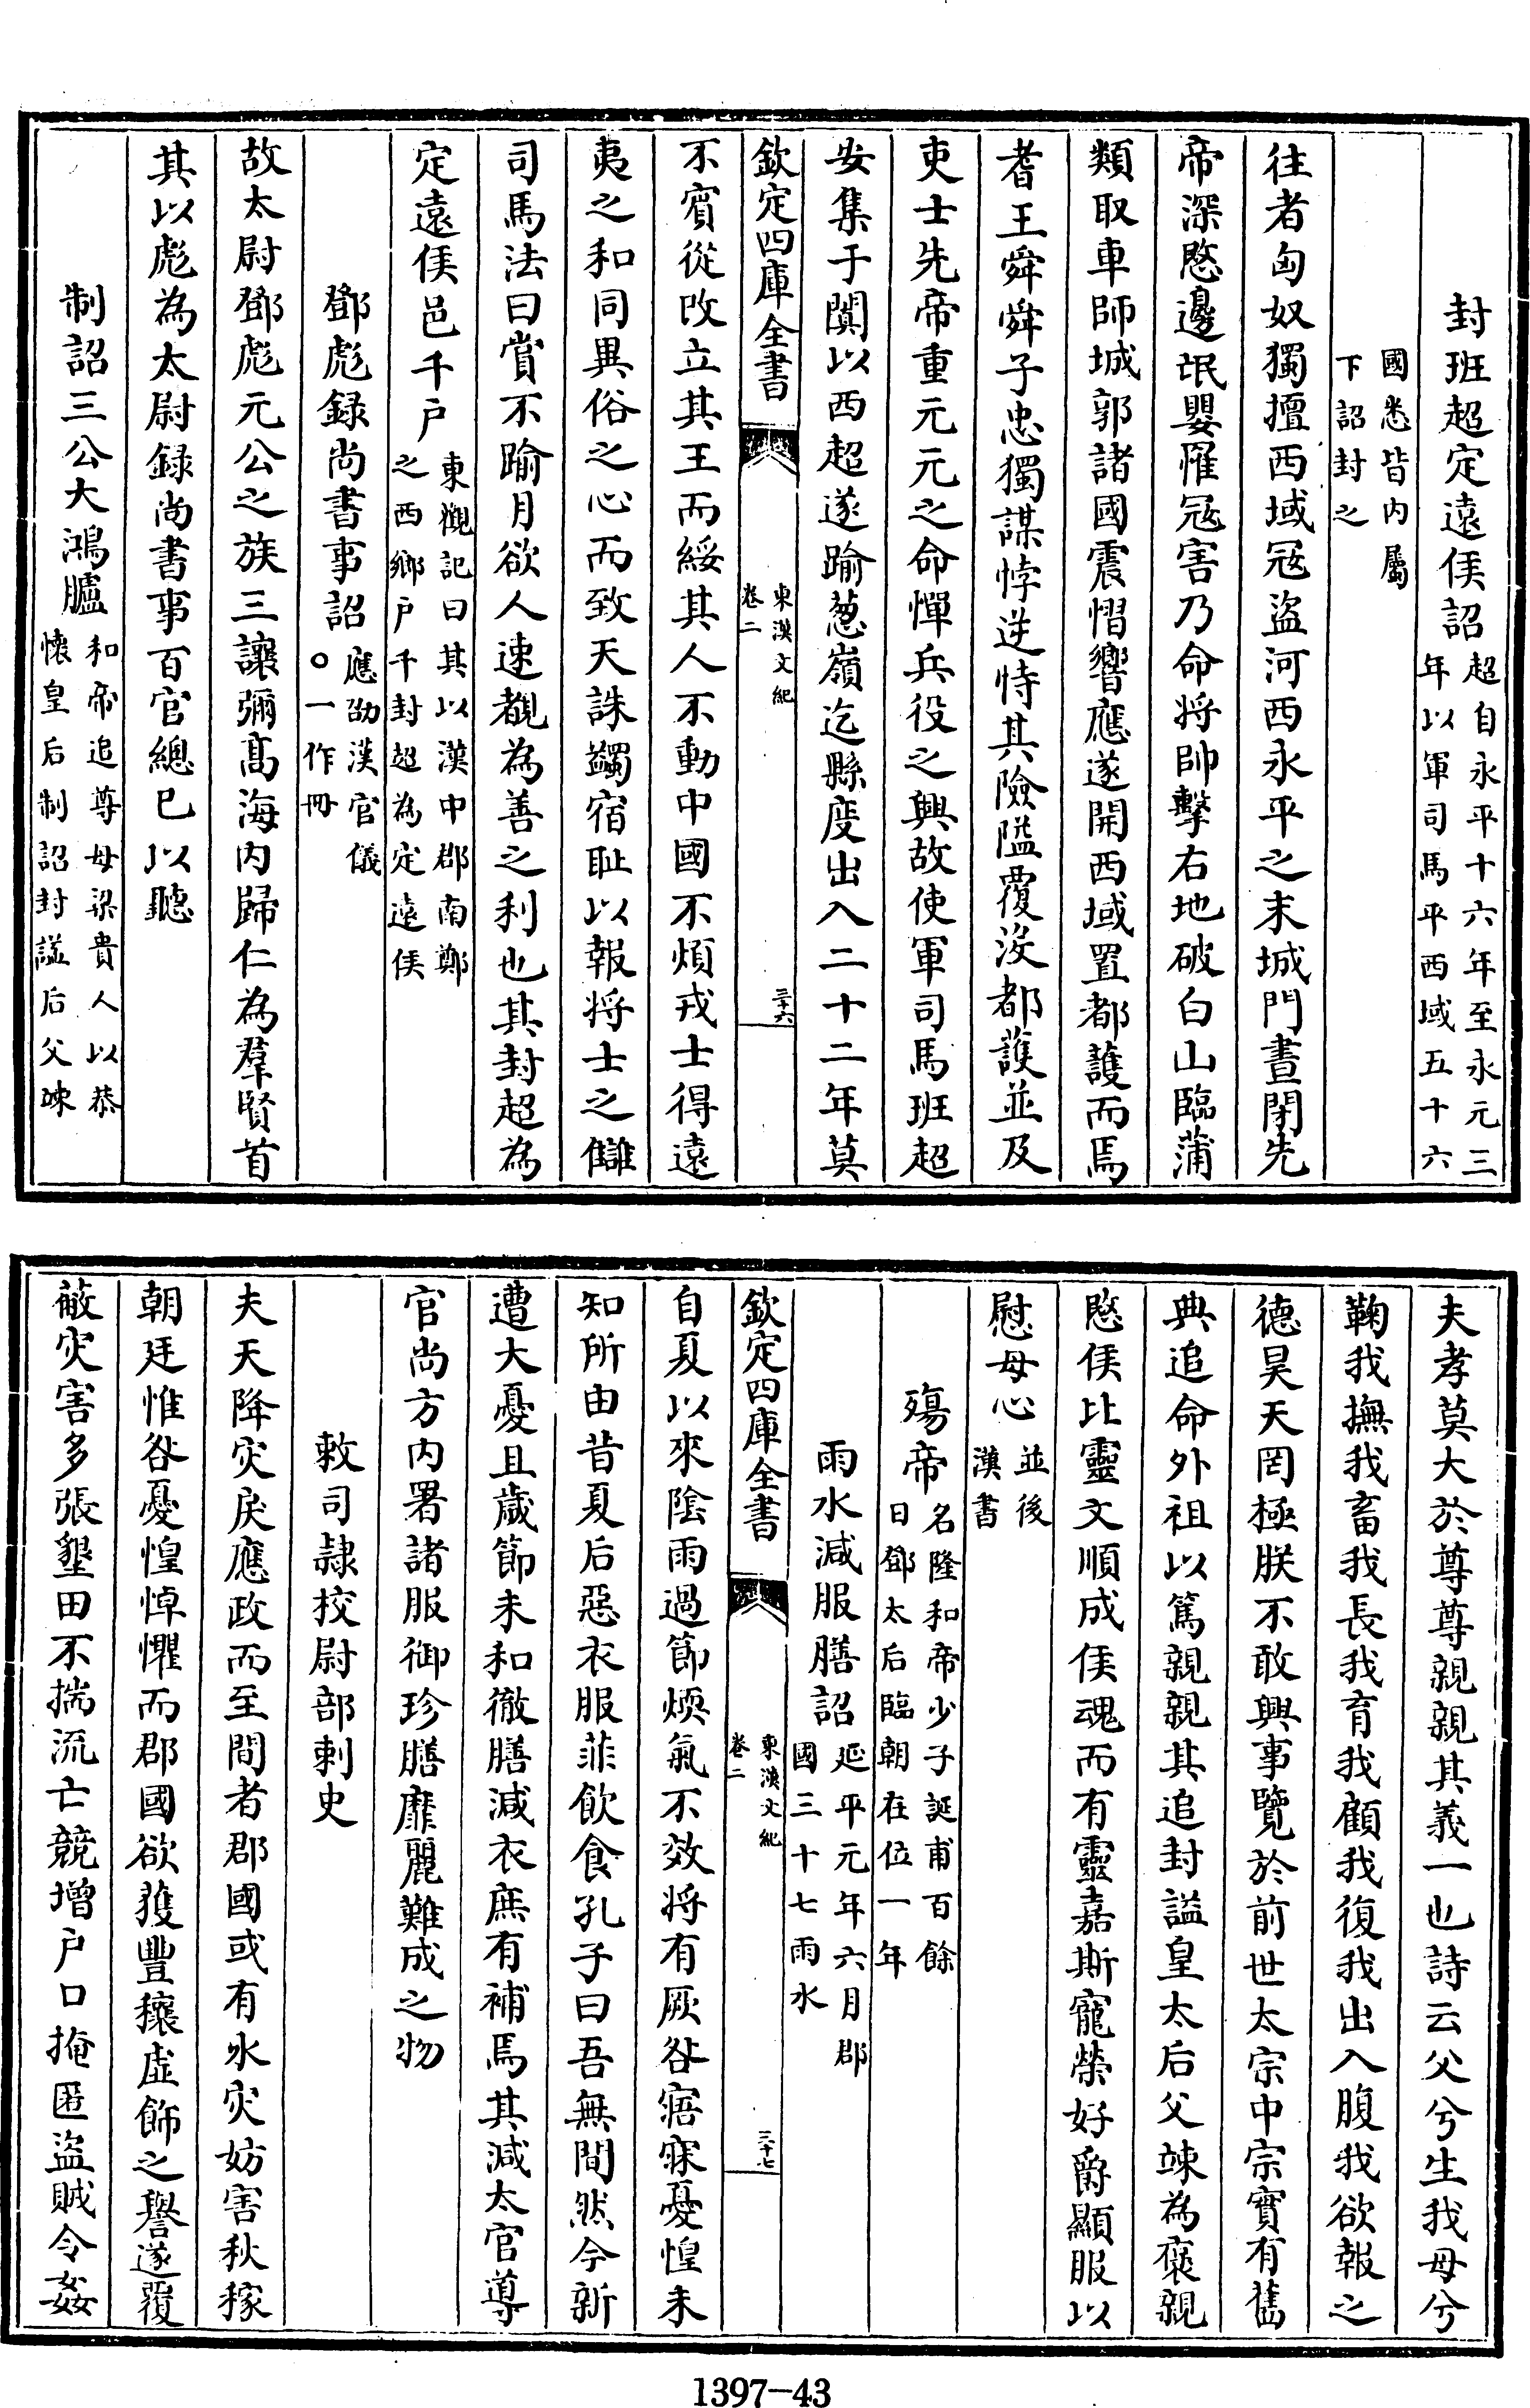 封班超定遠侯詔超自永平十六年至永元三
年以軍司馬平西域五十六
國悉皆内屬
下詔封之
往者匈奴獨擅西域冦盜河西永平之末城門晝閉先
帝深愍邊氓嬰罹冦害乃命將帥擊右地破白山臨蒲
類取車師城郭諸國震慴響應遂開西域置都護而焉
耆王舜舜子忠獨謀悖逆恃其險隘覆沒都護並及
吏士先帝重元元之命憚兵役之興故使軍司馬班超
安集于闐以西超遂踰葱嶺迄縣度出入二十二年莫
欽定四庫全書
東漢文紀
卷二
三十六
不賓從改立其王而綏其人不動中國不煩戎士得遠
夷之和同異俗之心而致天誅蠲宿耻以報將士之讎
司馬法曰賞不踰月欲人速覩為善之利也其封超為
定遠侯邑千户東觀記曰其以漢中郡南鄭
之西鄉户千封超為定遠侯
鄧彪録尚書事詔應劭漢官儀
○一作冊
故太尉鄧彪元公之族三讓彌髙海内歸仁為羣賢首
其以彪為太尉録尚書事百官總已以聽
制詔三公大鴻臚和帝追尊母梁貴人以恭
懷皇后制詔封諡后父竦
夫孝莫大於尊尊親親其義一也詩云父兮生我母兮
鞠我撫我畜我長我育我顧我復我出入腹我欲報之
德昊天罔極朕不敢興事覽於前世太宗中宗實有舊
典追命外祖以篤親親其追封諡皇太后父竦為褒親
愍侯比靈文順成侯魂而有靈嘉斯寵榮好爵顯服以
慰母心並後
漢書
殤帝名隆和帝少子誕甫百餘
日鄧太后臨朝在位一年
雨水減服膳詔延平元年六月郡
國三十七雨水
欽定四庫全書
東漢文紀
卷二
三十七
自夏以來陰雨過節煗氣不效將有厥咎寤寐憂惶未
知所由昔夏后惡衣服菲飲食孔子曰吾無間然今新
遭大憂且歲節未和徹膳減衣庶有補焉其減太官導
官尚方内署諸服御珍膳靡麗難成之物
敕司隷挍尉部刺史
夫天降灾戾應政而至間者郡國或有水灾妨害秋稼
朝廷惟咎憂惶悼懼而郡國欲獲豐穰虛飾之譽遂覆
蔽灾害多張墾田不揣流亡競增户口掩匿盜賊令姦
1397-43